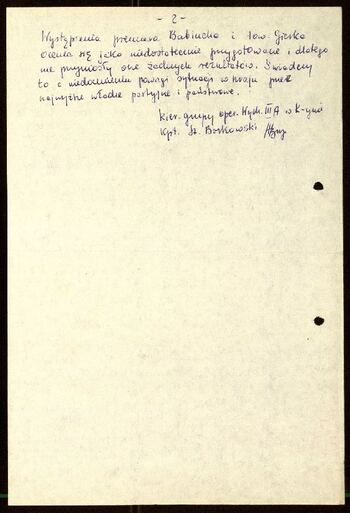 - 2 -
Wystąpienia premiera Babiucha i tow. Gierka
ocenia się jako niedostatecznie przygotowane i dlatego
nie przyniosły one żadnych rezultatów. Świadczy
to o niedocenianiu powagi sytuacji w kraju przez
najwyższe władze partyjne i państwowe.
Kier. grupy oper. Wydz. III A w K-ynie
Kpt. Sz. Borkowski